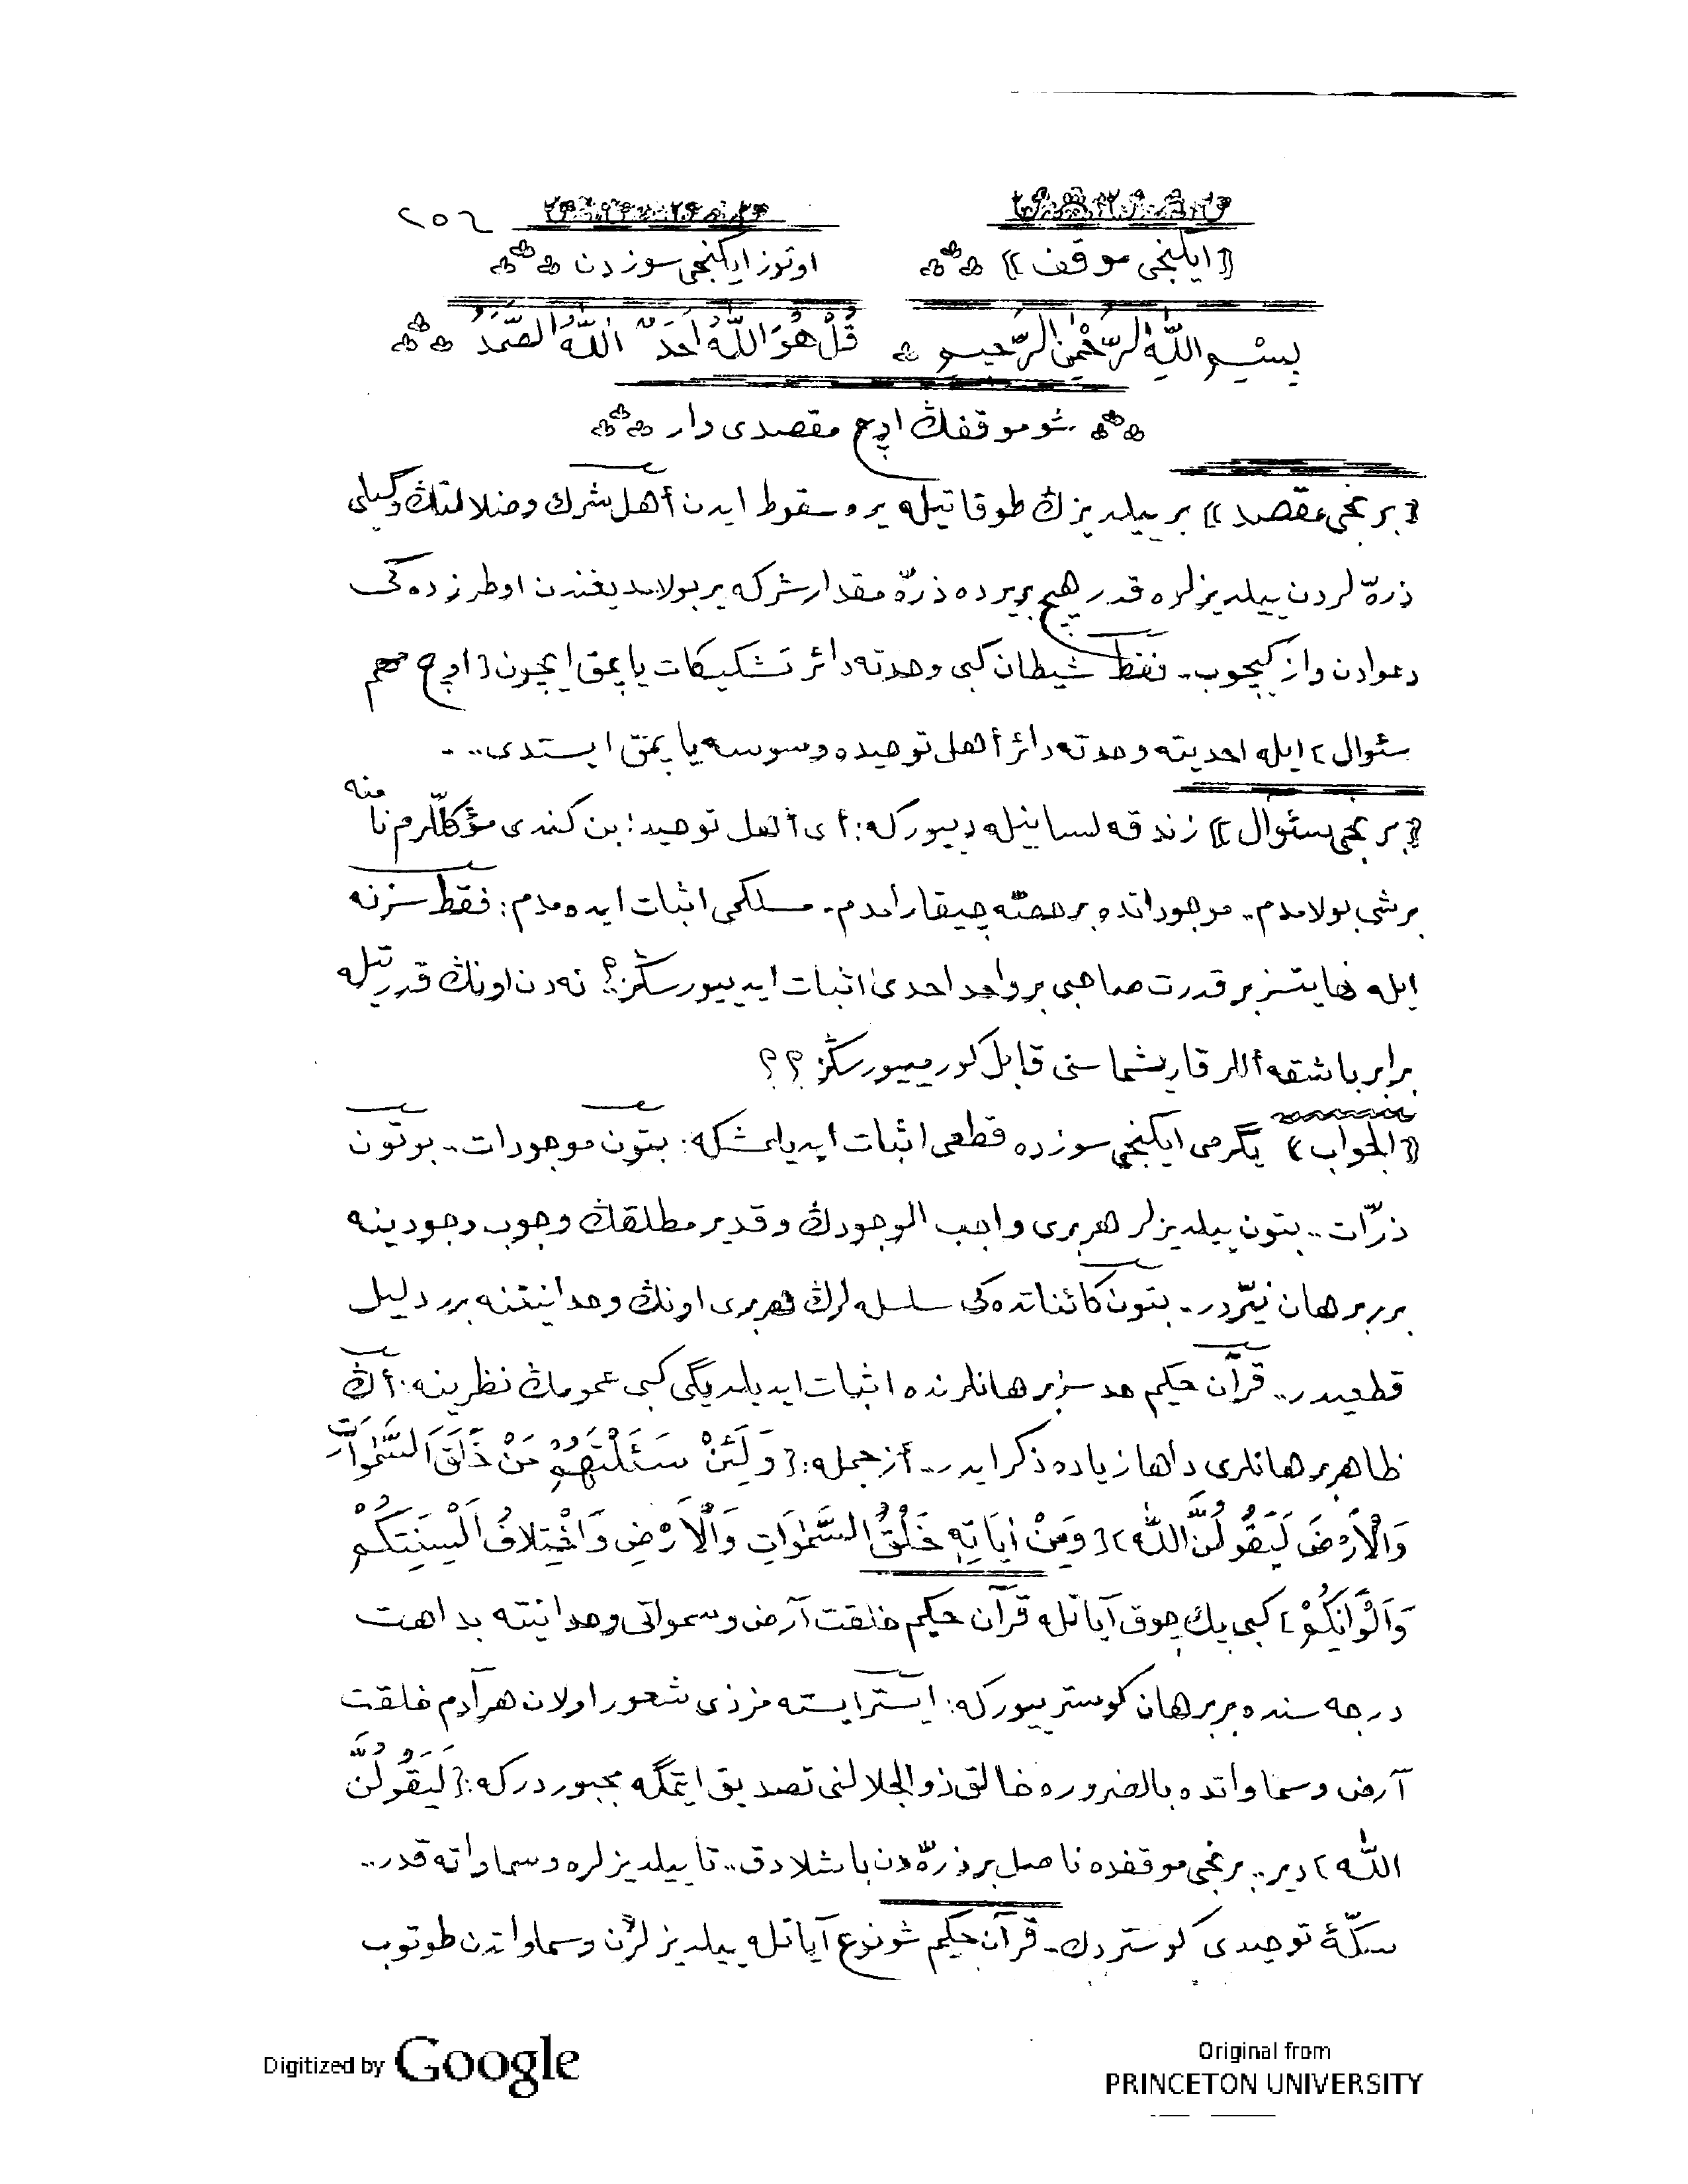 ٢٥٦
﴿ایكنجی موقف﴾ اوتوز ایكنجی سوزدن
بِسْمِ اللّٰهِ الرَّحْمٰنِ الرَّحِيمِ قُلْ هُوَ اللّٰهُ اَحَدٌ اَللّٰهُ الصَّمَدُ
شو موقفڭ اوچ مقصدی وار
﴿برنجی مقصد﴾ بر ییلدیزڭ طوقاتیله یره سقوط ایدن أهل شرك وضلالتڭ وكیلی
ذرّه‌لردن ییلدیزلره قدر هیچ بریرده ذرّه مقدار شركه یر بولامدیغندن او طرزده‌كی
دعوادن واز كچوب.. فقط شیطان كبی وحدته دائر تشكیكات یاپمق ایچون [اوچ مهم
سئوال] ایله احدیته وحدته دائر أهل توحیده وسوسه یاپمق ایستدی...
﴿برنجی سئوال﴾ زندقه لسانیله دییوركه: أی أهل توحید! بن كندی مؤكّللرم نامنه
برشی بولامدم.. موجوداتده بر حصّه چیقارامدم.. مسلكمی اثبات ایده‌مدم: فقط سز نه
ایله نهایتسز بر قدرت صاحبی بر واحد احدی اثبات ایدییورسڭز؟ نه‌دن اونڭ قدرتیله
برابر باشقه أللر قاریشماسنی قابل كورمییورسڭز؟؟
﴿الجواب﴾ یگرمی ایكنجی سوزده قطعی اثبات ایدیلمشكه: بتون موجودات.. بوتون
ذرّات.. بتون ییلدیزلر هربری واجب الوجودڭ وقدیر مطلقڭ وجوب وجودینه
بر برهان نیّردر.. بتون كائناتده‌كی سلسله‌لرڭ هربری اونڭ وحدانیتنه برر دلیل
قطعیدر.. قرآن حكیم حدسز برهانلرنده اثبات ایدیلدیگی كبی عمومڭ نظرینه: أڭ
ظاهر برهانلری داها زیاده ذكر ایدر.. أزجمله: [وَلَئِنْ سَئَلْتَهُمْ مَنْ خَلَقَ السَّمٰوَاتِ
وَالْاَرْضَ لَيَقُولُنَّ اللّٰهُ] [وَمِنْ اٰيَاتِهِ خَلْقُ السَّمٰوَاتِ وَالْاَرْضِ وَاخْتِلَافُ اَلْسِنَتِكُمْ
وَاَلْوَانِكُمْ] كبی پك چوق آیاتله قرآن حكیم خلقت آرض وسمواتی وحدانیته بداهت
درجه‌سنده بر برهان كوسترییوركه: ایستر ایسته‌مز ذی شعور اولان هر آدم خلقت
آرض وسماواتده بالضروره خالق ذوالجلالنی تصدیق ایتمگه مجبوردركه: [لَيَقُولُنَّ
اللّٰهُ] دیر.. برنجی موقفده ناصل بر ذرّه‌دن باشلادق.. تا ییلدیزلره وسماواته قدر..
سكّهٔ توحیدی كوستردك.. قرآن حكیم شو نوع آیاتله ییلدیزلردن وسماواتدن طوتوب
Digitized by Google
Original from
PRINCETON UNIVERSITY